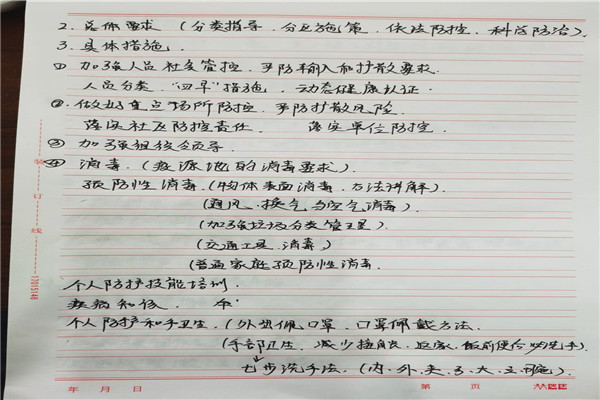 2. 总体要求（分类指导，分区施策，依法防控，科学防治）.
3. 具体措施.
① 加强人员社交管控，严防输入和扩散要求.
人员分类，"四早"措施，动态健康认证.
②. 做好重点场所防控，严防扩散风险.
落实社区防控责任. 落实单位防控.
③ 加强组织领导.
④ 消毒.（疫源地的消毒要求）.
预防性消毒.（物体表面消毒，方法讲解）.
（通风、换气与空气消毒）.
（加强垃圾分类管理）.
（交通工具 消毒）
（普通家庭预防性消毒.
个人防护技能培训.
疾病知识.
个人防护和手卫生.（外出佩口罩，口罩佩戴方法.
（手部卫生，减少接触，返家、饭前便后 洗手）.
七步洗手法.（内、外、夹、弓、大、立、腕）.
装
订
线
17015146
年 月 日
第 页